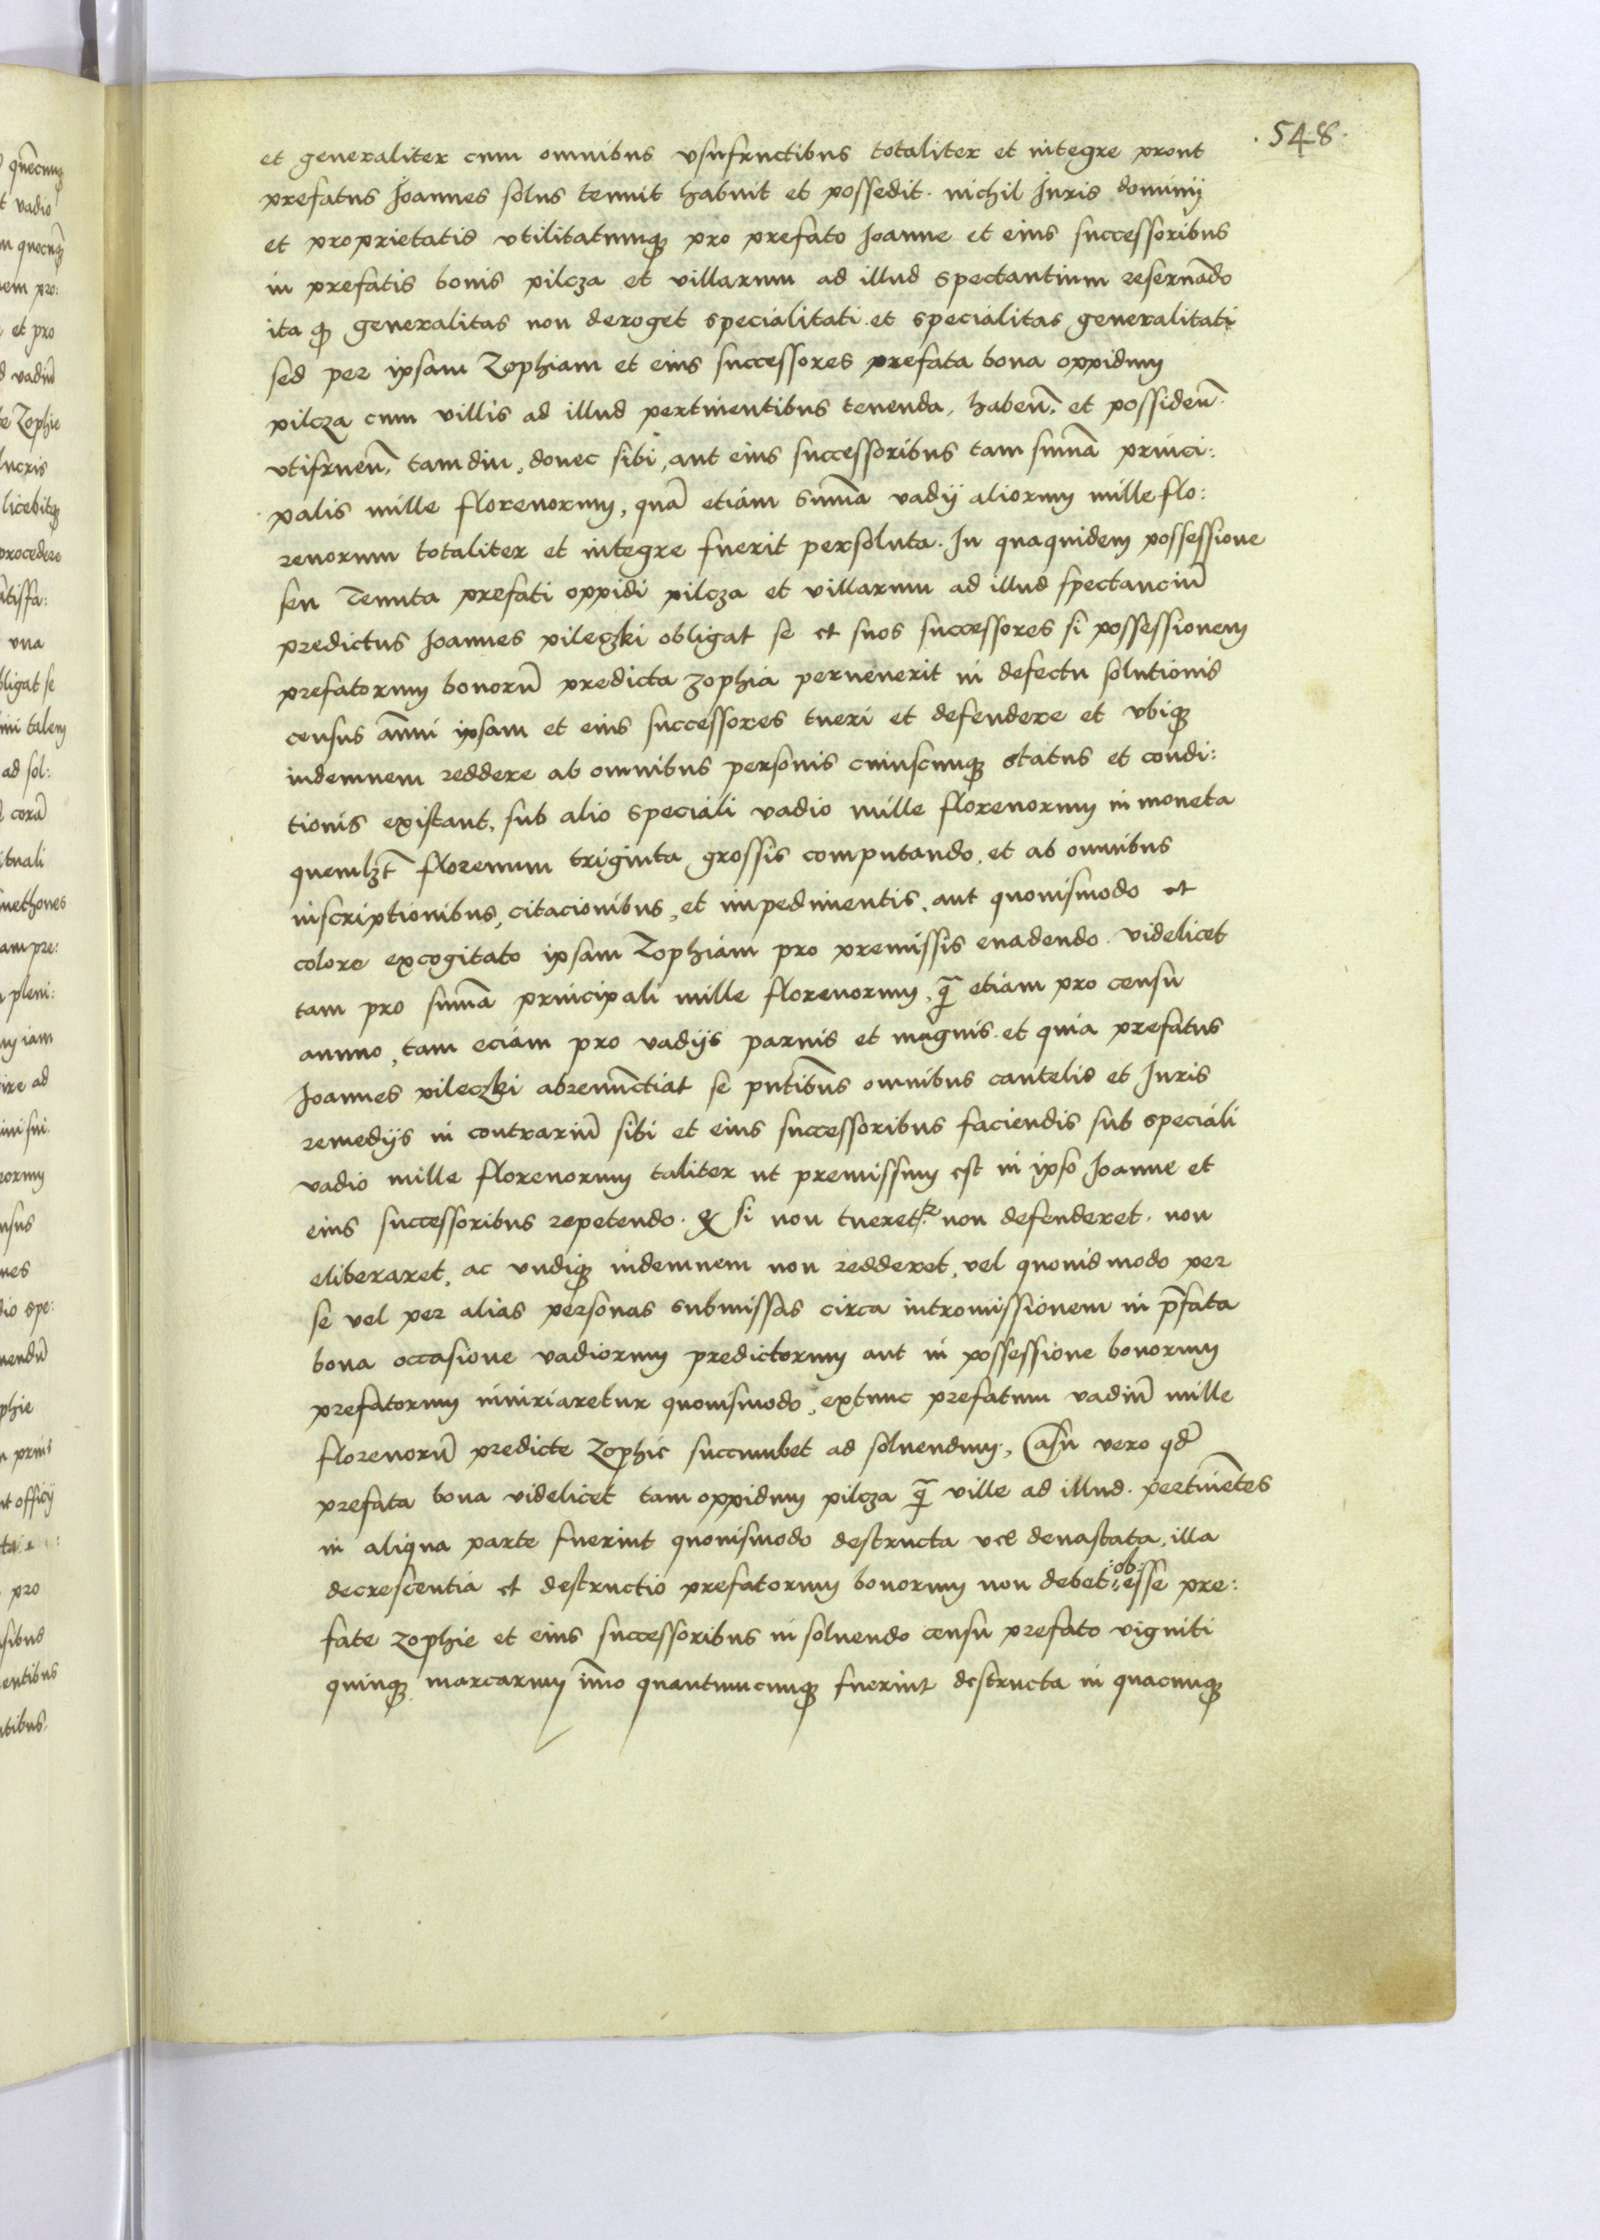 . 548 .
et generaliter cum omnibus vsufructibus totaliter et integre prout
prefatus Joannes solus tenuit habuit et possedit. nichil Juris dominij
et proprietatis vtilitatumq̨ pro prefato Joanne et eius successoribus
in prefatis bonis pilcza et villarum ad illud spectantium reseruãdo
ita q̨ generalitas non deroget specialitati. et specialitas generalitati
sed per ipsam Zophiam et eius successores prefata bona oppidum
pilcza cum villis ad illud pertinentibus tenenda, habeñ, et possideñ.
vtifrueñ, tam diu, donec sibi, aut eius successoribus tam sum̃a princi:
palis mille florenorum, quã etiam sum̃a vadij aliorum mille flo:
renorum totaliter et integre fuerit persoluta. In quaquidem possessione
seu Tenuta prefati oppidi pilcza et villarum ad illud spectanciũ
predictus Joannes pileczki obligat se et suos successores si possessionem
prefatorum bonorũ predicta zophia peruenerit in defectu solutionis
census añui ipsam et eius successores tueri et defendere et vbiq̨
indemnem reddere ab omnibus personis cuiuscumq̨ status et condi:
tionis existant, sub alio speciali vadio mille florenorum in moneta
quemlꝫt̃ florenum triginta grossis computando, et ab omnibus
inscriptionibus, citacionibus, et impedimentis, aut quouismodo et
colore excogitato ipsam Zophiam pro premissis euadendo. videlicet
tam pro sum̃a principali mille florenorum, q̃ etiam pro censu
annuo, tam eciam pro vadijs paruis et magnis. et quia prefatus
Joannes pileczki abrenũctiat se pñtibus omnibus cautelis et Juris
remedijs in contrariũ sibi et eius successoribus faciendis sub speciali
vadio mille florenorum taliter ut premissum est in ipso Joanne et
eius successoribus repetendo. & si non tueretr, non defenderet, non
eliberaret, ac vndiq̨ indemnem non redderet, vel quouismodo per
se vel per alias personas submissas circa intromissionem in p̃fata
bona occasione vadiorum predictorum aut in possessione bonorum
prefatorum iniuriaretur quouismodo, extunc prefatum vadiũ mille
florenorũ predicte Zophie succumbet ad soluendum, Casu vero qd̃
prefata bona videlicet tam oppidum pilcza q̃ ville ad illud pertinẽtes
in aliqua parte fuerint quouismodo destructa vel deuastata, illa
decrescentia et destructio prefatorum bonorum non debet :ob: esse pre:
fate zophie et eius successoribus in soluendo censu prefato viginti
quinq̨ marcarum im̃o quantumcumq̨ fuerint destructa in quacumq̨